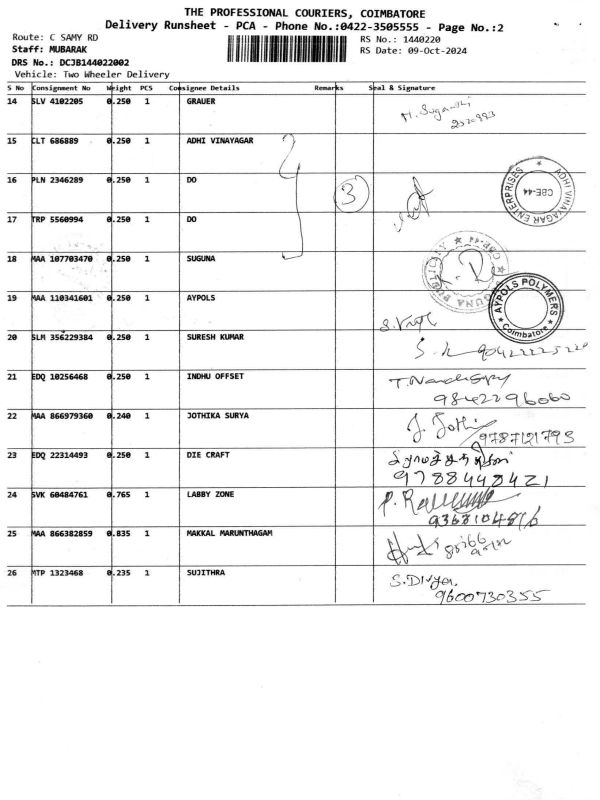 THE PROFESSIONAL COURIERS, COIMBATORE
Delivery Runsheet - PCA - Phone No.:0422-3505555 - Page No.:2
Route: C SAMY RD
RS No.: 1440220
Staff: MUBARAK
RS Date: 09-Oct-2024
DRS No.: DCJB144022002
Vehicle: Two Wheeler Delivery
S No Consignment No Weight PCS Consignee Details Remarks Seal & Signature
14 SLV 4102205 0.250 1 GRAUER
15 CLT 686889 0.250 1 ADHI VINAYAGAR
16 PLN 2346289 0.250 1 DO 3
ADHI VINAYAGAR ENTERPRISES CBE-44
17 TRP 5560994 0.250 1 DO
18 MAA 107703470 0.250 1 SUGUNA
19 MAA 110341601 0.250 1 AYPOLS
AYPOLS POLYMERS Coimbatore
20 SLM 356229384 0.250 1 SURESH KUMAR
21 EDQ 10256468 0.250 1 INDHU OFFSET
9842296060
22 MAA 866979360 0.240 1 JOTHIKA SURYA J. Jothi
9787121793
23 EDQ 22314493 0.250 1 DIE CRAFT
9788448421
24 SVK 60484761 0.765 1 LABBY ZONE
25 MAA 866382859 0.835 1 MAKKAL MARUNTHAGAM
26 MTP 1323468 0.235 1 SUJITHRA S.Divya.
9600730355